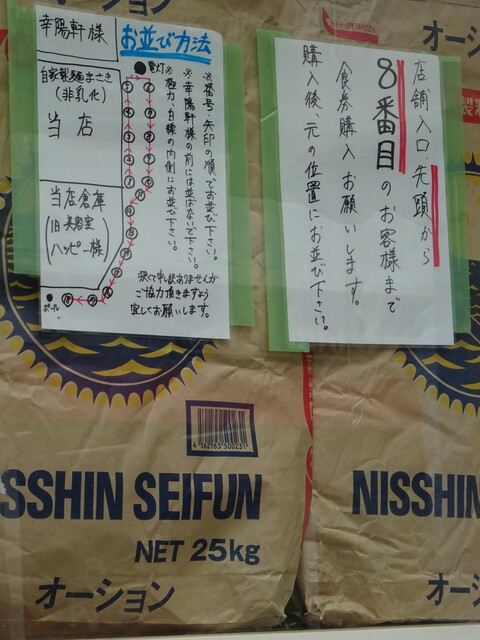 オーション
オーシ
幸陽軒様
お並び方法
自家製麺まさき
(非乳化)
当店
当店倉庫
(旧美容室
ハッピー様)
ポール
※番号・矢印の順でお並び下さい。
※幸陽軒様の前には並ばないで下さい。
※極力、白線の内側にお並び下さい。
狭くて申し訳ありませんが
ご協力頂きますよう
宜しくお願いします。
店舗入口・先頭から
8番目のお客様まで
食券購入お願いします。
購入後、元の位置にお並び下さい。
4 562163 500231
SSHIN SEIFUN
NET 25kg
オーション
NISSHIN
オーシ